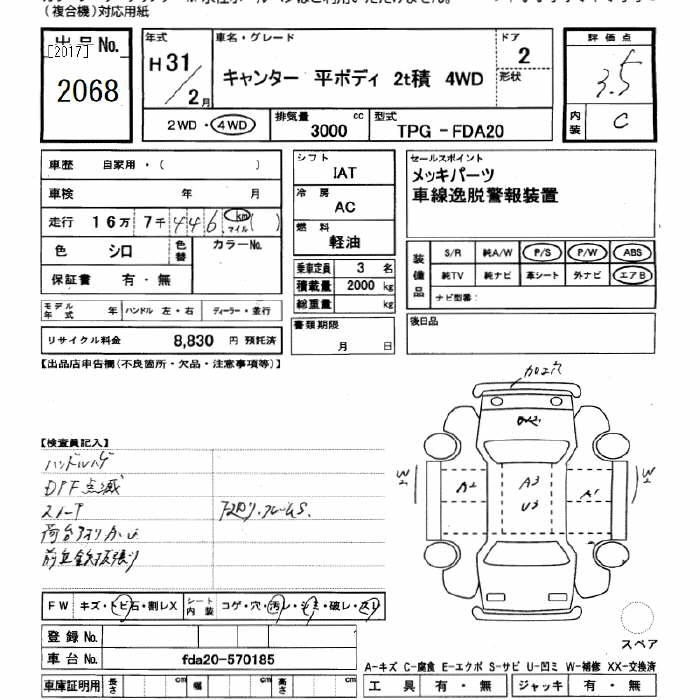 (複合機)対応用紙
出品No.
[2017]
2068
年式
H31/2月
車名・グレード
キャンター 平ボディ 2t積 4WD
ドア
2
形状
評価点
3.5
内装
C
2WD・4WD
排気量
3000
cc
型式
TPG-FDA20
車歴 自家用・( )
車検 年 月
走行 16万 7千 446 km マイル ( )
色 シロ
色替
カラーNo.
保証書 有・無
モデル年式 年 ハンドル 左・右 ディーラー・並行
リサイクル料金 8,830 円 預託済
シフト
IAT
冷房
AC
燃料
軽油
乗車定員 3 名
積載量 2000 kg
総重量 kg
書類期限
月 日
セールスポイント
メッキパーツ
車線逸脱警報装置
装備品
S/R 純A/W P/S P/W ABS
純TV 純ナビ 革シート 外ナビ エアB
ナビ型番:
後日品
【出品店申告欄(不良箇所・欠品・注意事項等)】
【検査員記入】
ハンドルハゲ
DPF点滅
スレキズ
下回り・フレームS.
FW キズ・トビ石・割レX
シート内装 コゲ・穴・汚レ・シミ・破レ・スレ
登録No.
車台No. fda20-570185
車庫証明用 長さ cm 幅 cm 高さ cm
W2
A2
A3
U3
A1
W2
スペア
A-キズ C-腐食 E-エクボ S-サビ U-凹ミ W-補修 XX-交換済
工具 有・無 ジャッキ 有・無